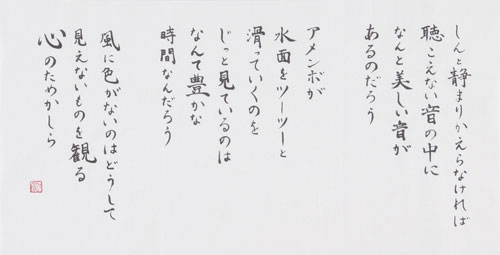 しんと静まりかえらなければ
聴こえない音の中に
なんと美しい音が
あるのだろう
アメンボが
水面をツーツーと
滑っていくのを
じっと見ているのは
なんて豊かな
時間なんだろう
風に色がないのはどうして
見えないものを観る
心のためかしら